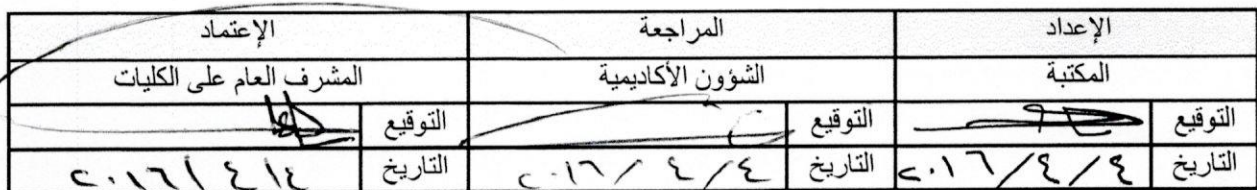 الإعداد المراجعة الإعتماد
المكتبة الشؤون الأكاديمية المشرف العام على الكليات
التوقيع التوقيع التوقيع
التاريخ ٤/٤/٢٠١٦ التاريخ ٤/٤/٢٠١٦ التاريخ ٤/٤/٢٠١٦